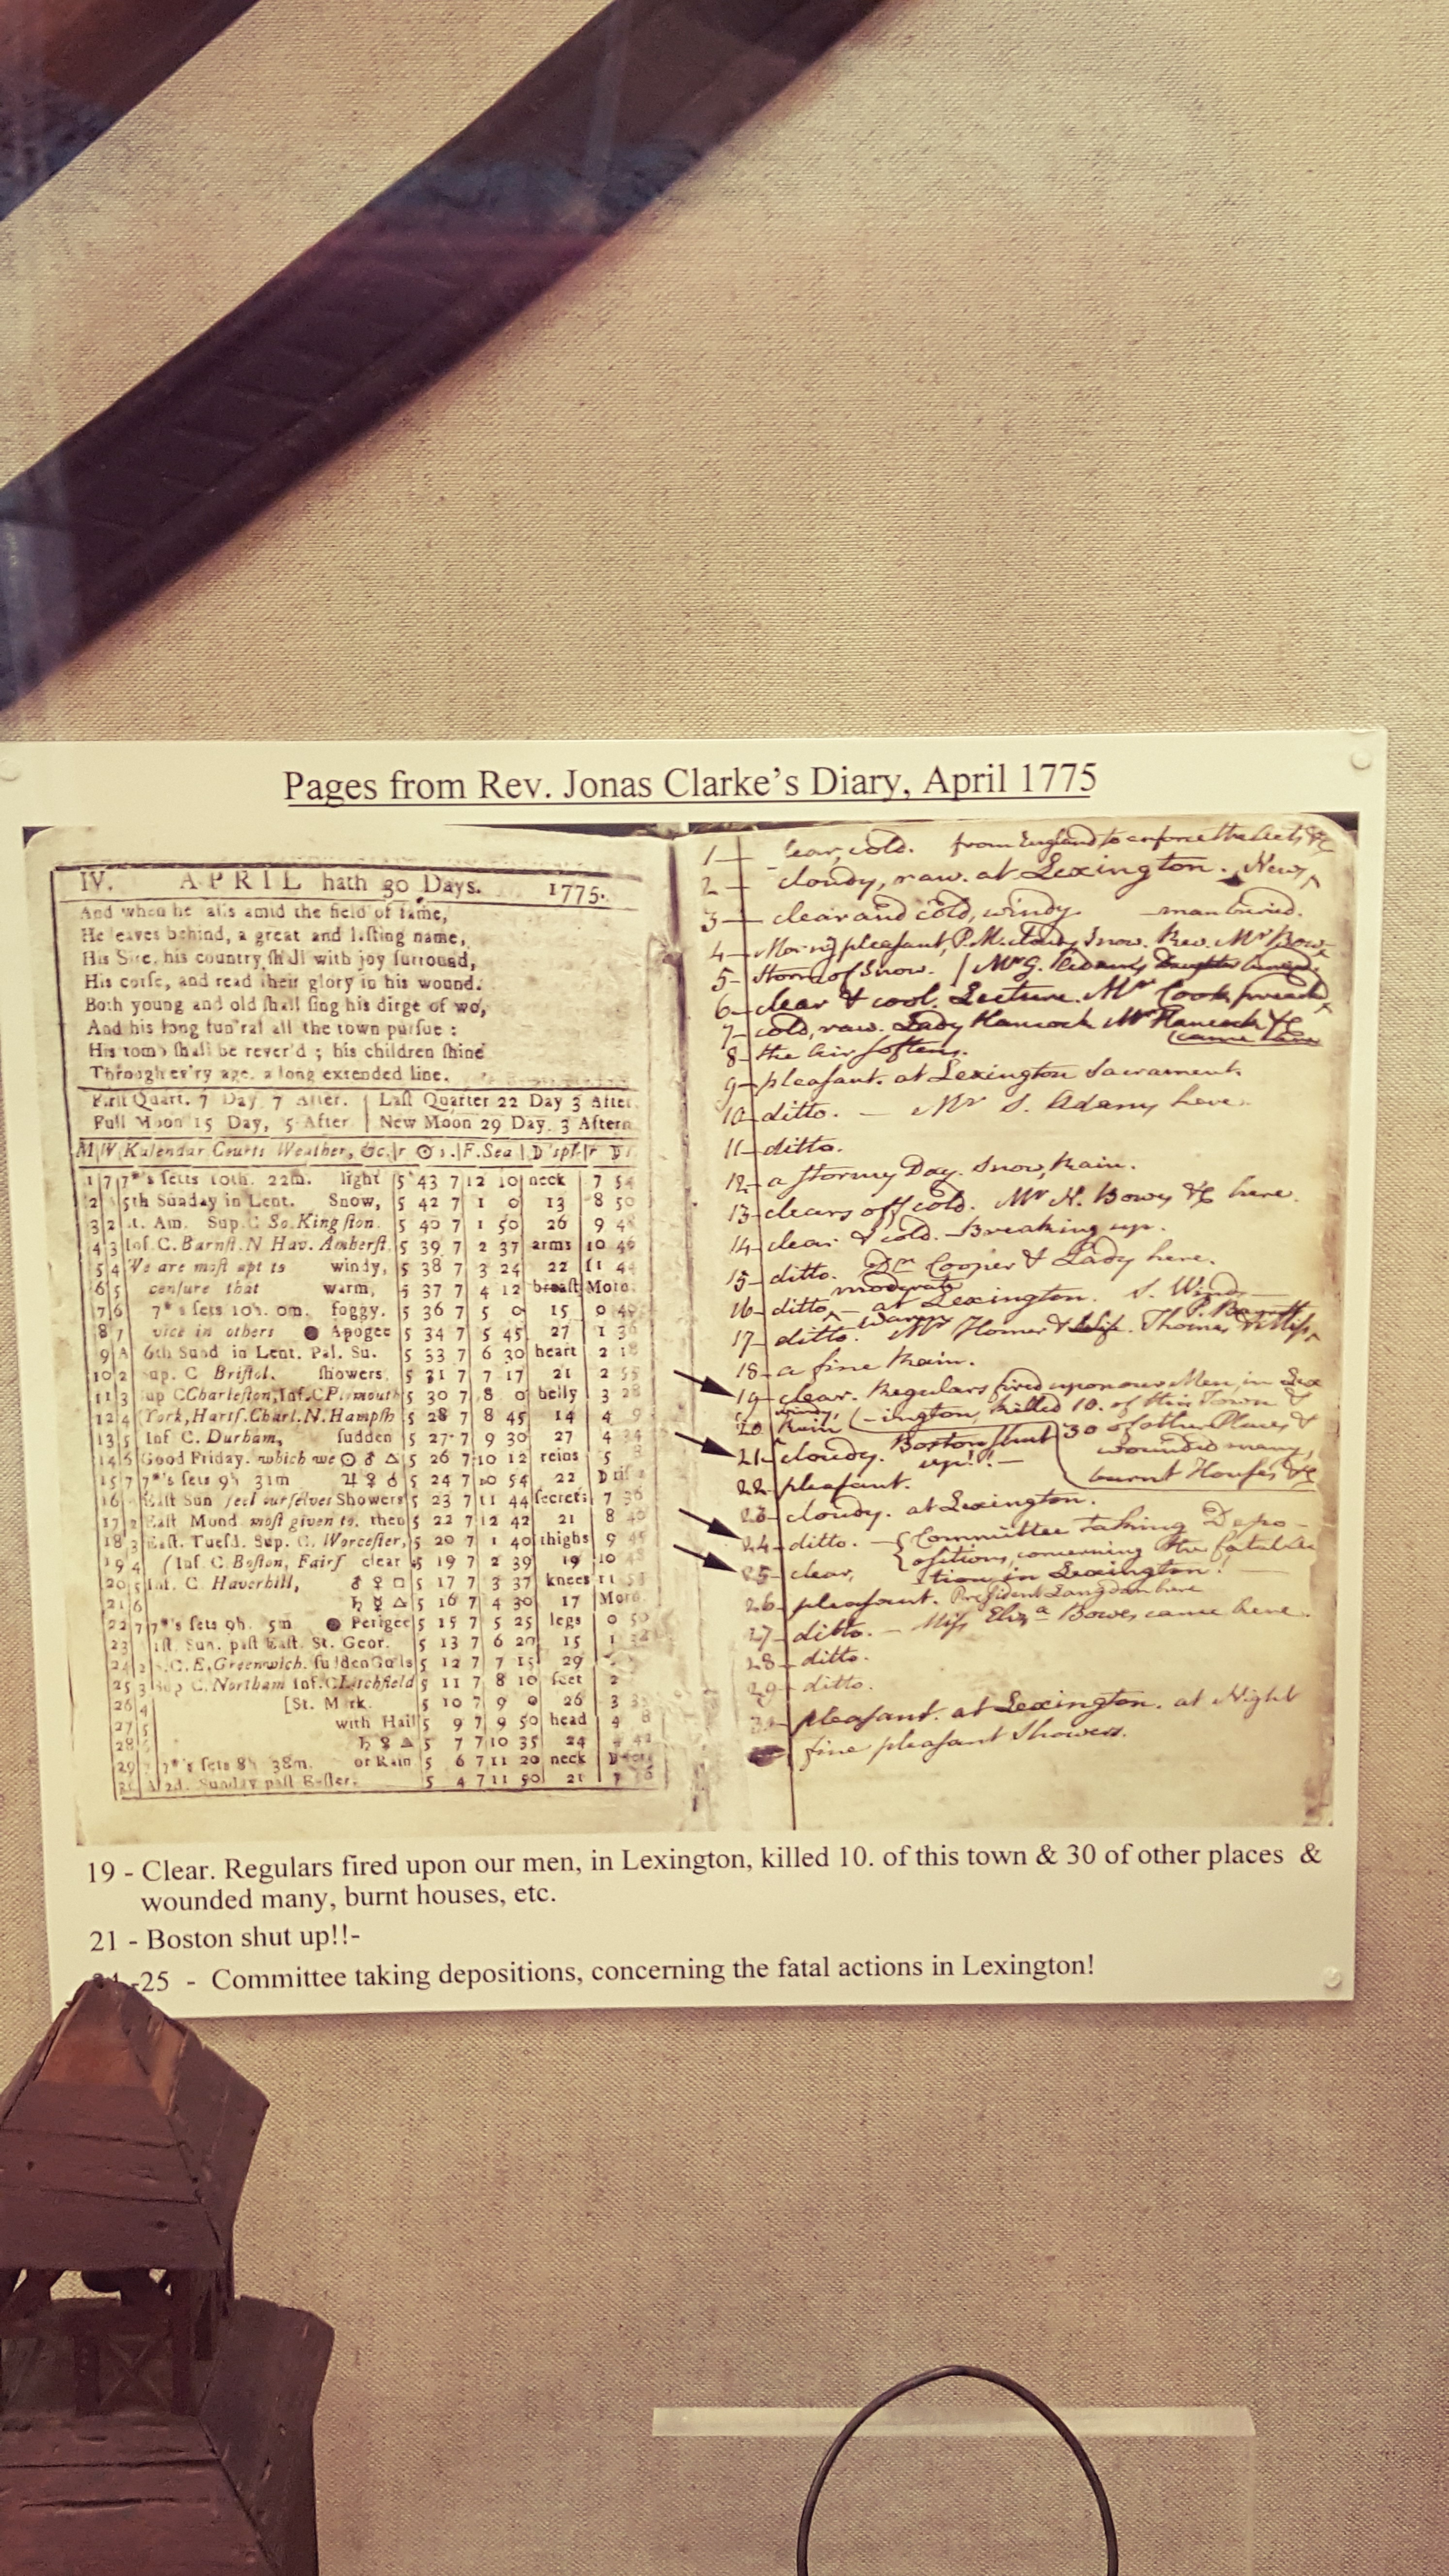 Pages from Rev. Jonas Clarke's Diary, April 1775
IV. APRIL hath 30 Days. 1775.
And when he falls amid the field of fame,
He leaves behind, a great and lasting name,
His Sire, his country shall with joy surround,
His corse, and read their glory in his wound.
Both young and old shall sing his dirge of wo,
And his long fun'ral all the town pursue :
His tomb shall be rever'd ; his children shine
Through ev'ry age, a long extended line.
First Quart. 7 Day 7 After. Last Quarter 22 Day 3 After
Full Moon 15 Day, 5 After New Moon 29 Day. 3 Aftern
M W Kalendar Courts Weather, &c. r ☉ s. F. Sea D's pl. r D
1 7 7*'s setts 10th. 22m. light 5 43 7 12 10 neck 7 54
2 5th Sunday in Lent. Snow, 5 42 7 1 0 13 8 50
3 2 t. Am. Sup. C So. Kingston. 5 40 7 1 50 26 9
4 3 Inf. C. Barnst. N Hav. Amherst. 5 39 7 2 37 arms 10 46
5 4 We are most apt to windy, 5 38 7 3 24 22 11 44
6 5 censure that warm, 5 37 7 4 12 breast Morn.
7 6 7*'s sets 10h. 0m. foggy. 5 36 7 5 0 15 0 40
8 7 vice in others ● Apogee 5 34 7 5 45 27 1 36
9 A 6th Sund in Lent. Pal. Su. 5 33 7 6 30 heart 2 18
10 2 Sup. C Bristol. showers. 5 31 7 7 17 21 2 55
11 3 Sup C Charleston, Inf. C Plymouth 5 30 7 8 0 belly 3 28
12 4 York, Hartf. Charl. N. Hampsh 5 28 7 8 45 14 4 9
13 5 Inf C. Durham, sudden 5 27 7 9 30 27 4 34
14 6 Good Friday. which we ☉ ♂ △ 5 26 7 10 12 reins 5
15 7 7*'s sets 9h 31m ♃ ♀ ☌ 5 24 7 10 54 22 D ris
16 East Sun feel ourselves Showers 5 23 7 11 44 secrets 7 36
17 2 East Mond most given to. then 5 22 7 12 42 21 8 40
18 3 East. Tuesd. Sup. C. Worcester, 5 20 7 1 40 thighs 9 45
19 4 (Inf. C. Boston, Fairf clear 5 19 7 2 39 19 10 48
20 5 Inf. C Haverhill, ♂ ♀ □ 5 17 7 3 37 knees 11 53
21 6 ♄ ☿ △ 5 16 7 4 30 17 Morn
22 7 7*'s sets 9h. 5m ● Perigee 5 15 7 5 25 legs 0 50
23 1st. Sun. past East. St. Geor. 5 13 7 6 20 15 1
24 2 S. C. E. Greenwich. sudden Galls 5 12 7 7 15 29
25 3 Sup C. Northam Inf. C Litchfield 5 11 7 8 10 feet 2
26 4 [St. Mark. 5 10 7 9 0 26 3
27 5 with Hail 5 9 7 9 50 head 4 8
28 ♄ ♀ △ 5 7 7 10 35 24 4 42
29 7*'s sets 8h 38m. or Rain 5 6 7 11 20 neck D sets
30 A 2d. Sunday past Easter. 5 4 7 11 50 21 7
1 clear, cold. from England to enforce the Acts &c
2 cloudy, raw. at Lexington. News
3 clear and cold, windy man buried.
4 Morng pleasant, P.M. cloudy Snow. Rev. Mr Bow
5 Storm of Snow. Mr G. Adams Daughter buried
6 clear & cool. Lecture. Mr Cook preach
7 cold, raw. Lady Hancock Mr Hancock &c
came here
8 the Air softens.
9 pleasant. at Lexington Sacrament.
10 ditto. — Mr S. Adams here.
11 ditto.
12 a stormy Day. Snow, Rain.
13 clears off cold. Mr N. Bowes &c here.
14 clear & cold. Breaking up.
15 ditto. Dr Cooper & Lady here.
moderate
16 ditto, — at Lexington. S. Wind
warm
17 ditto. Mr Homer & Wife. Thomas
18 a fine Rain.
19 clear. Regulars fired upon our Men, in Lex
-ington, killed 10. of this Town &
30 of other Places &
wounded many,
burnt Houses &c
20 windy, Rain
21 cloudy. Boston shut
up!! —
22 pleasant.
23 cloudy. at Lexington.
24 ditto. — Committee taking Depo-
ositions, concerning the fatal Ac
25 clear, tion in Lexington!
26 pleasant. President Langdon here
27 ditto. — Miss Eliza Bowes came here.
28 ditto.
29 ditto.
30 pleasant. at Lexington. at Night
fine pleasant Showers.
19 - Clear. Regulars fired upon our men, in Lexington, killed 10. of this town & 30 of other places &
wounded many, burnt houses, etc.
21 - Boston shut up!!-
24 -25 - Committee taking depositions, concerning the fatal actions in Lexington!